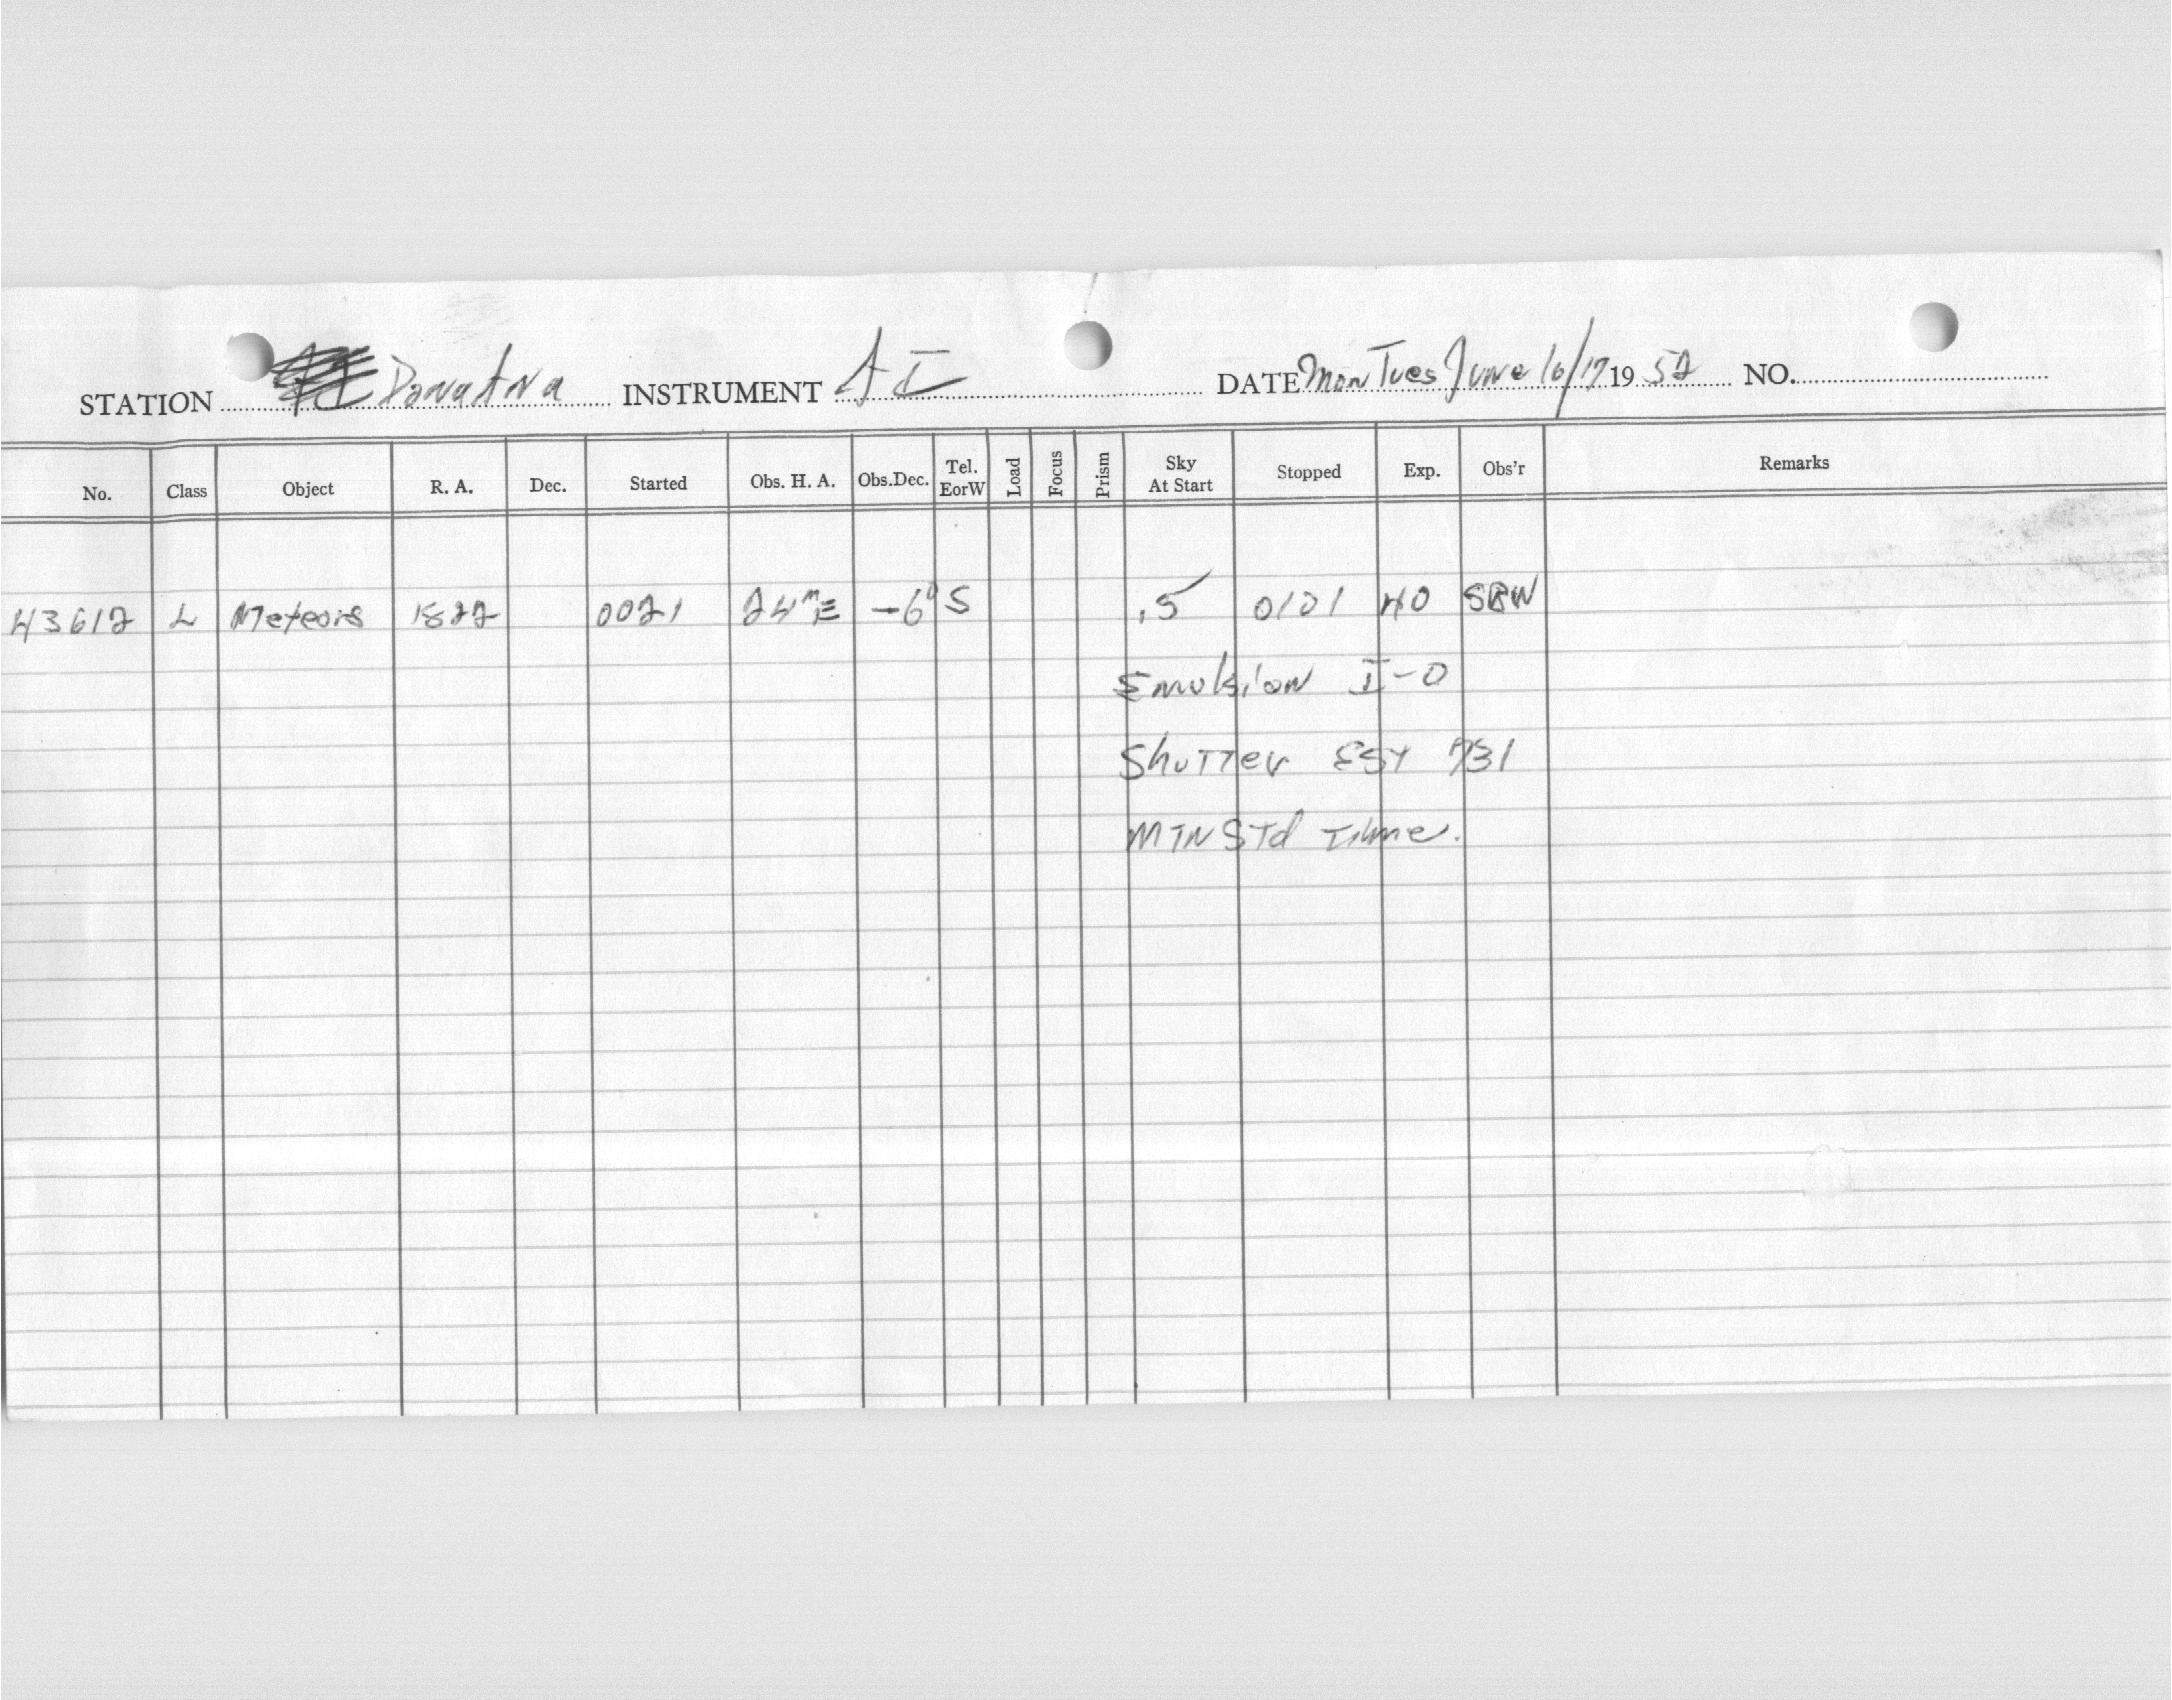 STATION Dona Ana INSTRUMENT AI DATE Mon Tues June 16/17 19 52 NO.
No. Class Object R. A. Dec. Started Obs. H. A. Obs.Dec. Tel. EorW Load Focus Prism Sky At Start Stopped Exp. Obs'r Remarks
43612 L Meteors 1822 0021 24ᵐE -6° S .5 0101 40 SBW
Emulsion I-O
Shutter 731
MTN STd Time.